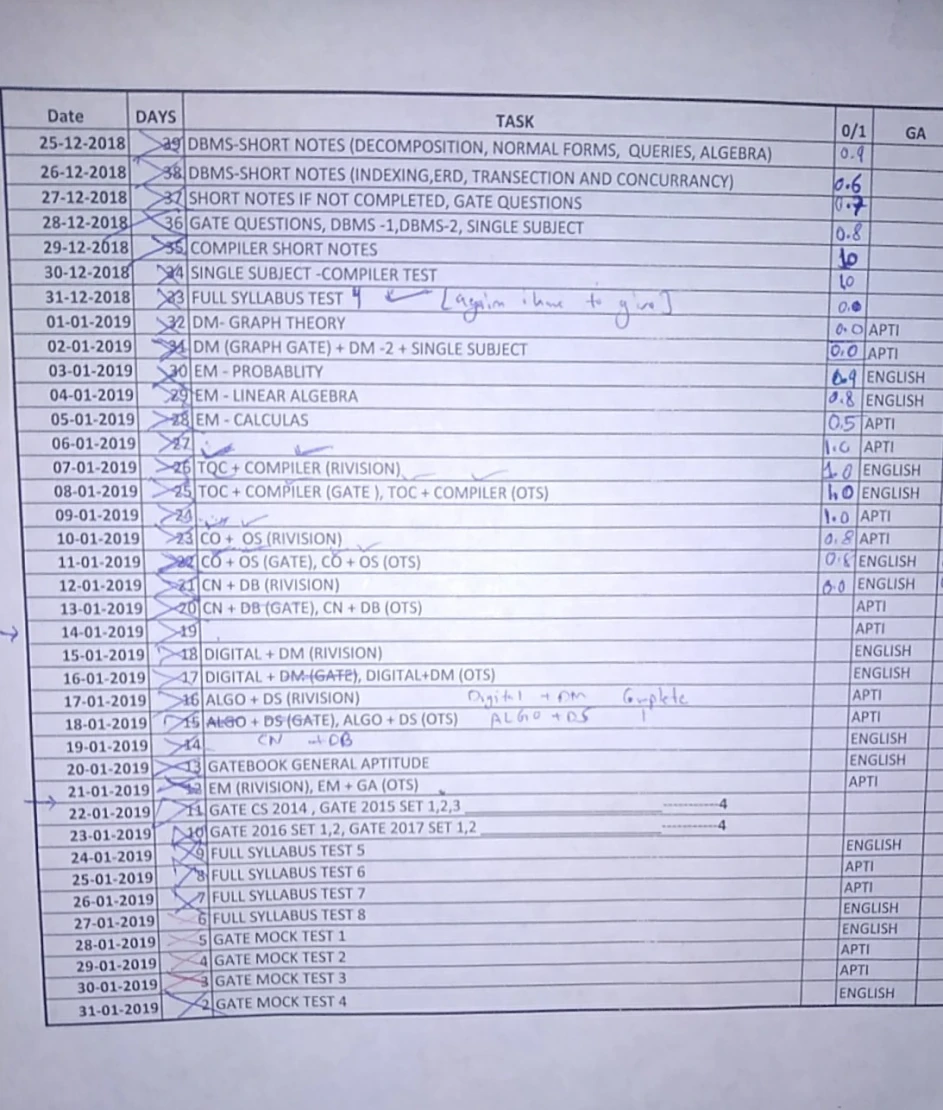 Date DAYS TASK 0/1 GA
25-12-2018 39 DBMS-SHORT NOTES (DECOMPOSITION, NORMAL FORMS, QUERIES, ALGEBRA) 0.9
26-12-2018 38 DBMS-SHORT NOTES (INDEXING,ERD, TRANSECTION AND CONCURRANCY) 0.6
27-12-2018 37 SHORT NOTES IF NOT COMPLETED, GATE QUESTIONS 0.7
28-12-2018 36 GATE QUESTIONS, DBMS -1,DBMS-2, SINGLE SUBJECT 0.8
29-12-2018 35 COMPILER SHORT NOTES 10
30-12-2018 34 SINGLE SUBJECT -COMPILER TEST 10
31-12-2018 33 FULL SYLLABUS TEST 4 [again i have to give] 0.0
01-01-2019 32 DM- GRAPH THEORY 0.0 APTI
02-01-2019 31 DM (GRAPH GATE) + DM -2 + SINGLE SUBJECT 0.0 APTI
03-01-2019 30 EM - PROBABLITY 0.9 ENGLISH
04-01-2019 29 EM - LINEAR ALGEBRA 0.8 ENGLISH
05-01-2019 28 EM - CALCULAS 0.5 APTI
06-01-2019 27 1.0 APTI
07-01-2019 26 TOC + COMPILER (RIVISION) 1.0 ENGLISH
08-01-2019 25 TOC + COMPILER (GATE ), TOC + COMPILER (OTS) 1.0 ENGLISH
09-01-2019 24 1.0 APTI
10-01-2019 23 CO + OS (RIVISION) 0.8 APTI
11-01-2019 22 CO + OS (GATE), CO + OS (OTS) 0.8 ENGLISH
12-01-2019 21 CN + DB (RIVISION) 0.0 ENGLISH
13-01-2019 20 CN + DB (GATE), CN + DB (OTS) APTI
14-01-2019 19 APTI
15-01-2019 18 DIGITAL + DM (RIVISION) ENGLISH
16-01-2019 17 DIGITAL + DM (GATE), DIGITAL+DM (OTS) ENGLISH
17-01-2019 16 ALGO + DS (RIVISION) Digital + DM Complete APTI
18-01-2019 15 ALGO + DS (GATE), ALGO + DS (OTS) ALGO + DS APTI
19-01-2019 14 CN + DB ENGLISH
20-01-2019 13 GATEBOOK GENERAL APTITUDE ENGLISH
21-01-2019 12 EM (RIVISION), EM + GA (OTS) APTI
22-01-2019 11 GATE CS 2014 , GATE 2015 SET 1,2,3 ----------4
23-01-2019 10 GATE 2016 SET 1,2, GATE 2017 SET 1,2 ----------4
24-01-2019 9 FULL SYLLABUS TEST 5 ENGLISH
25-01-2019 8 FULL SYLLABUS TEST 6 APTI
26-01-2019 7 FULL SYLLABUS TEST 7 APTI
27-01-2019 6 FULL SYLLABUS TEST 8 ENGLISH
28-01-2019 5 GATE MOCK TEST 1 ENGLISH
29-01-2019 4 GATE MOCK TEST 2 APTI
30-01-2019 3 GATE MOCK TEST 3 APTI
31-01-2019 2 GATE MOCK TEST 4 ENGLISH